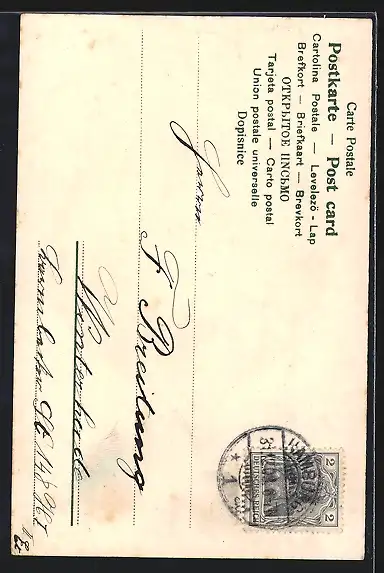 Carte Postale
Postkarte — Post card
Cartolina Postale — Levelezö-Lap
Brefkort — Briefkaart — Brevkort
ОТКРЫТОЕ ПИСЬМО
Tarjeta postal — Carto postal
Union postale universelle
Dopisnice
2 2
DEUTSCHES REICH
HAMBURG
* 1
F Breitung
Winterhude